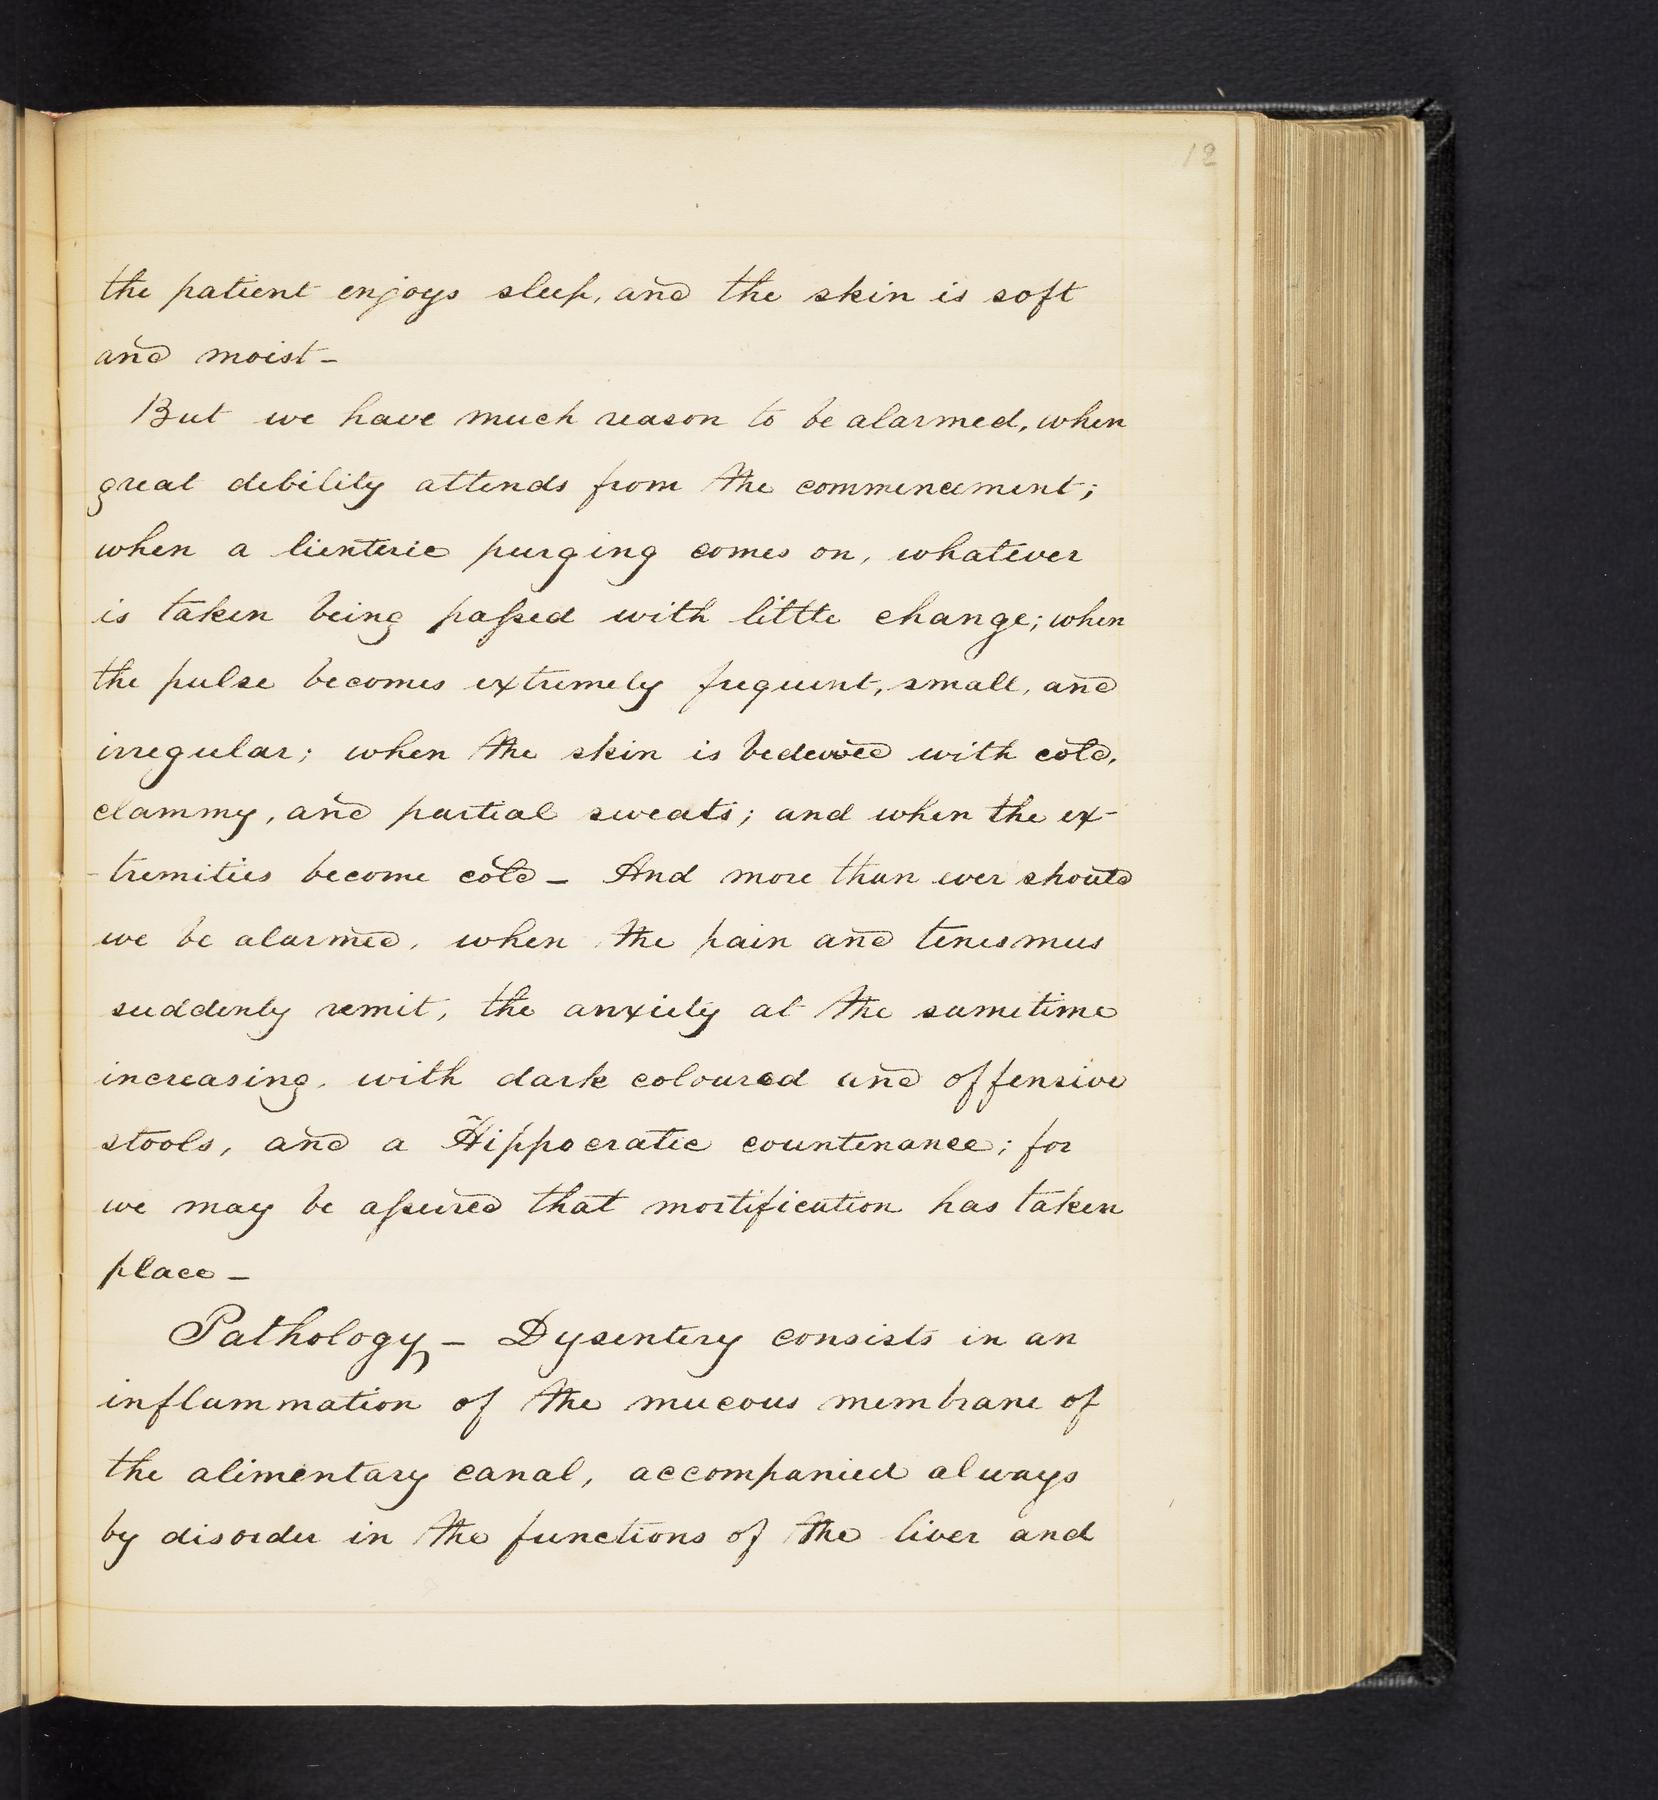 12
the patient enjoys sleep, and the skin is soft
and moist-
But we have much reason to be alarmed, when
great debility attends from the commencement;
when a lienteric purging comes on, whatever
is taken being paſsed with little change; when
the pulse becomes extremely frequent, small, and
irregular; when the skin is bedewed with cold,
clammy, and partial sweats; and when the ex-
-tremities become cold- And more than ever should
we be alarmed, when the pain and tenesmus
suddenly remit, the anxiety at the sametime
increasing, with dark coloured and offensive
stools, and a Hippocratic countenance; for
we may be aſsured that mortification has taken
place-
Pathology- Dysentery consists in an
inflammation of the mucous membrane of
the alimentary canal, accompanied always
by disorder in the functions of the liver and